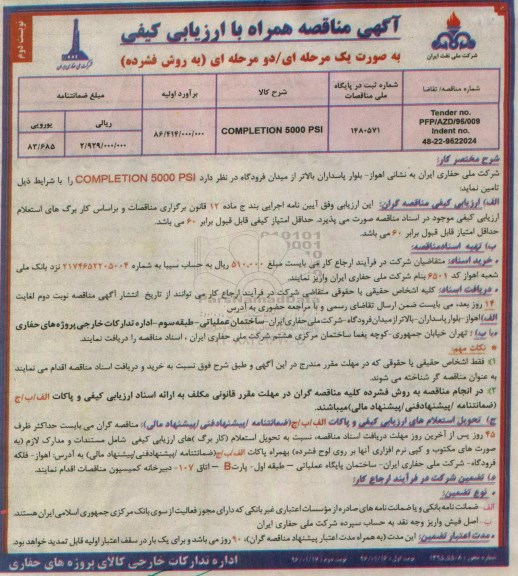 نوبت دوم
آگهی مناقصه همراه با ارزیابی کیفی
به صورت یک مرحله ای/دو مرحله ای (به روش فشرده)
شرکت ملی نفت ایران
شماره مناقصه/ تقاضا
شماره ثبت در پایگاه ملی مناقصات
شرح کالا
برآورد اولیه
مبلغ ضمانتنامه
ریالی
یورویی
Tender no.
PFP/AZD/95/009
Indent no.
48-22-9522024
۱۴۸۰۵۷۱
COMPLETION 5000 PSI
۸۶/۴۱۴/۰۰۰/۰۰۰
۲/۹۲۹/۰۰۰/۰۰۰
۸۳/۶۸۵
شرح مختصر کار:
شرکت ملی حفاری ایران به نشانی اهواز- بلوار پاسداران بالاتر از میدان فرودگاه در نظر دارد COMPLETION 5000 PSI را با شرایط ذیل
تامین نماید:
الف) ارزیابی کیفی مناقصه گران: این ارزیابی وفق آیین نامه اجرایی بند ج ماده ۱۲ قانون برگزاری مناقصات و براساس کار برگ های استعلام
ارزیابی کیفی موجود در اسناد مناقصه صورت می پذیرد. حداقل امتیاز کیفی قابل قبول برابر ۶۰ می باشد.
حداقل امتیاز قابل قبول برابر ۶۰ می باشد.
ب) تهیه اسناد مناقصه:
• خرید اسناد: متقاضیان شرکت در فرآیند ارجاع کار می بایست مبلغ ۵۱۰,۰۰۰ ریال به حساب سیبا به شماره ۲۱۷۴۶۵۲۲۰۵۰۰۴ نزد بانک ملی
شعبه اهواز کد ۶۵۰۱ بنام شرکت ملی حفاری ایران واریز نمایند.
• دریافت اسناد: کلیه اشخاص حقیقی یا حقوقی متقاضی شرکت در فرآیند ارجاع کار می توانند از تاریخ انتشار آگهی مناقصه نوبت دوم لغایت
۱۴ روز بعد، می بایست ضمن ارسال تقاضای رسمی و با مراجعه حضوری به آدرس
الف) اهواز- بلوار پاسداران- بالاتر از میدان فرودگاه - شرکت ملی حفاری ایران- ساختمان عملیاتی- طبقه سوم - اداره تدارکات خارجی پروژه های حفاری
یا ب) : تهران خیابان جمهوری-کوچه یغما ساختمان مرکزی هشتم شرکت ملی حفاری ایران ، اسناد مناقصه را دریافت نمایند.
* نکات مهم:
۱): فقط اشخاص حقیقی یا حقوقی که در مهلت مقرر مندرج در این آگهی و طبق شرح فوق نسبت به خرید و دریافت اسناد مناقصه اقدام می نمایند
به عنوان مناقصه گر شناخته می شوند.
۲): در انجام مناقصه به روش فشرده کلیه مناقصه گران در مهلت مقرر قانونی مکلف به ارائه اسناد ارزیابی کیفی و پاکات الف/ب/ج
(ضمانتنامه /پیشنهادفنی/پیشنهاد مالی)میباشند.
ج) تحویل استعلام های ارزیابی کیفی و پاکات الف/ب/ج(ضمانتنامه /پیشنهادفنی/ پیشنهاد مالی): مناقصه گران می بایست حداکثر ظرف
۴۵ روز پس از آخرین روز مهلت دریافت اسناد مناقصه، نسبت به تحویل استعلام (کار برگ )های ارزیابی کیفی شامل مستندات و مدارک لازم (به
صورت های مکتوب و کپی نرم افزاری آنها بر روی لوح فشرده) بهمراه پاکات الف/ب/ج(ضمانتنامه /پیشنهادفنی/پیشنهاد مالی) به آدرس: اهواز- فلکه
فرودگاه- شرکت ملی حفاری ایران- ساختمان پایگاه عملیاتی – طبقه اول- پارت B – اتاق ۱۰۷- دبیرخانه کمیسیون مناقصات اقدام نمایند.
د) تضمین شرکت در فرآیند ارجاع کار:
• نوع تضمین:
الف- ضمانت نامه بانکی و یا ضمانت نامه های صادره از مؤسسات اعتباری غیر بانکی که دارای مجوز فعالیت از سوی بانک مرکزی جمهوری اسلامی ایران هستند.
ب- اصل فیش واریز وجه نقد به حساب سپرده شرکت ملی حفاری ایران
• مدت اعتبار تضمین: این مدت (به همراه مدت اعتبار پیشنهاد مناقصه گران)، ۹۰ روز می باشد و برای یک بار در سقف اعتبار اولیه قابل تمدید خواهد بود.
نوبت اول: ۹۶/۰۱/۱۶ نوبت دوم: ۹۶/۰۱/۱۷
اداره تدارکات خارجی کالای پروژه های حفاری